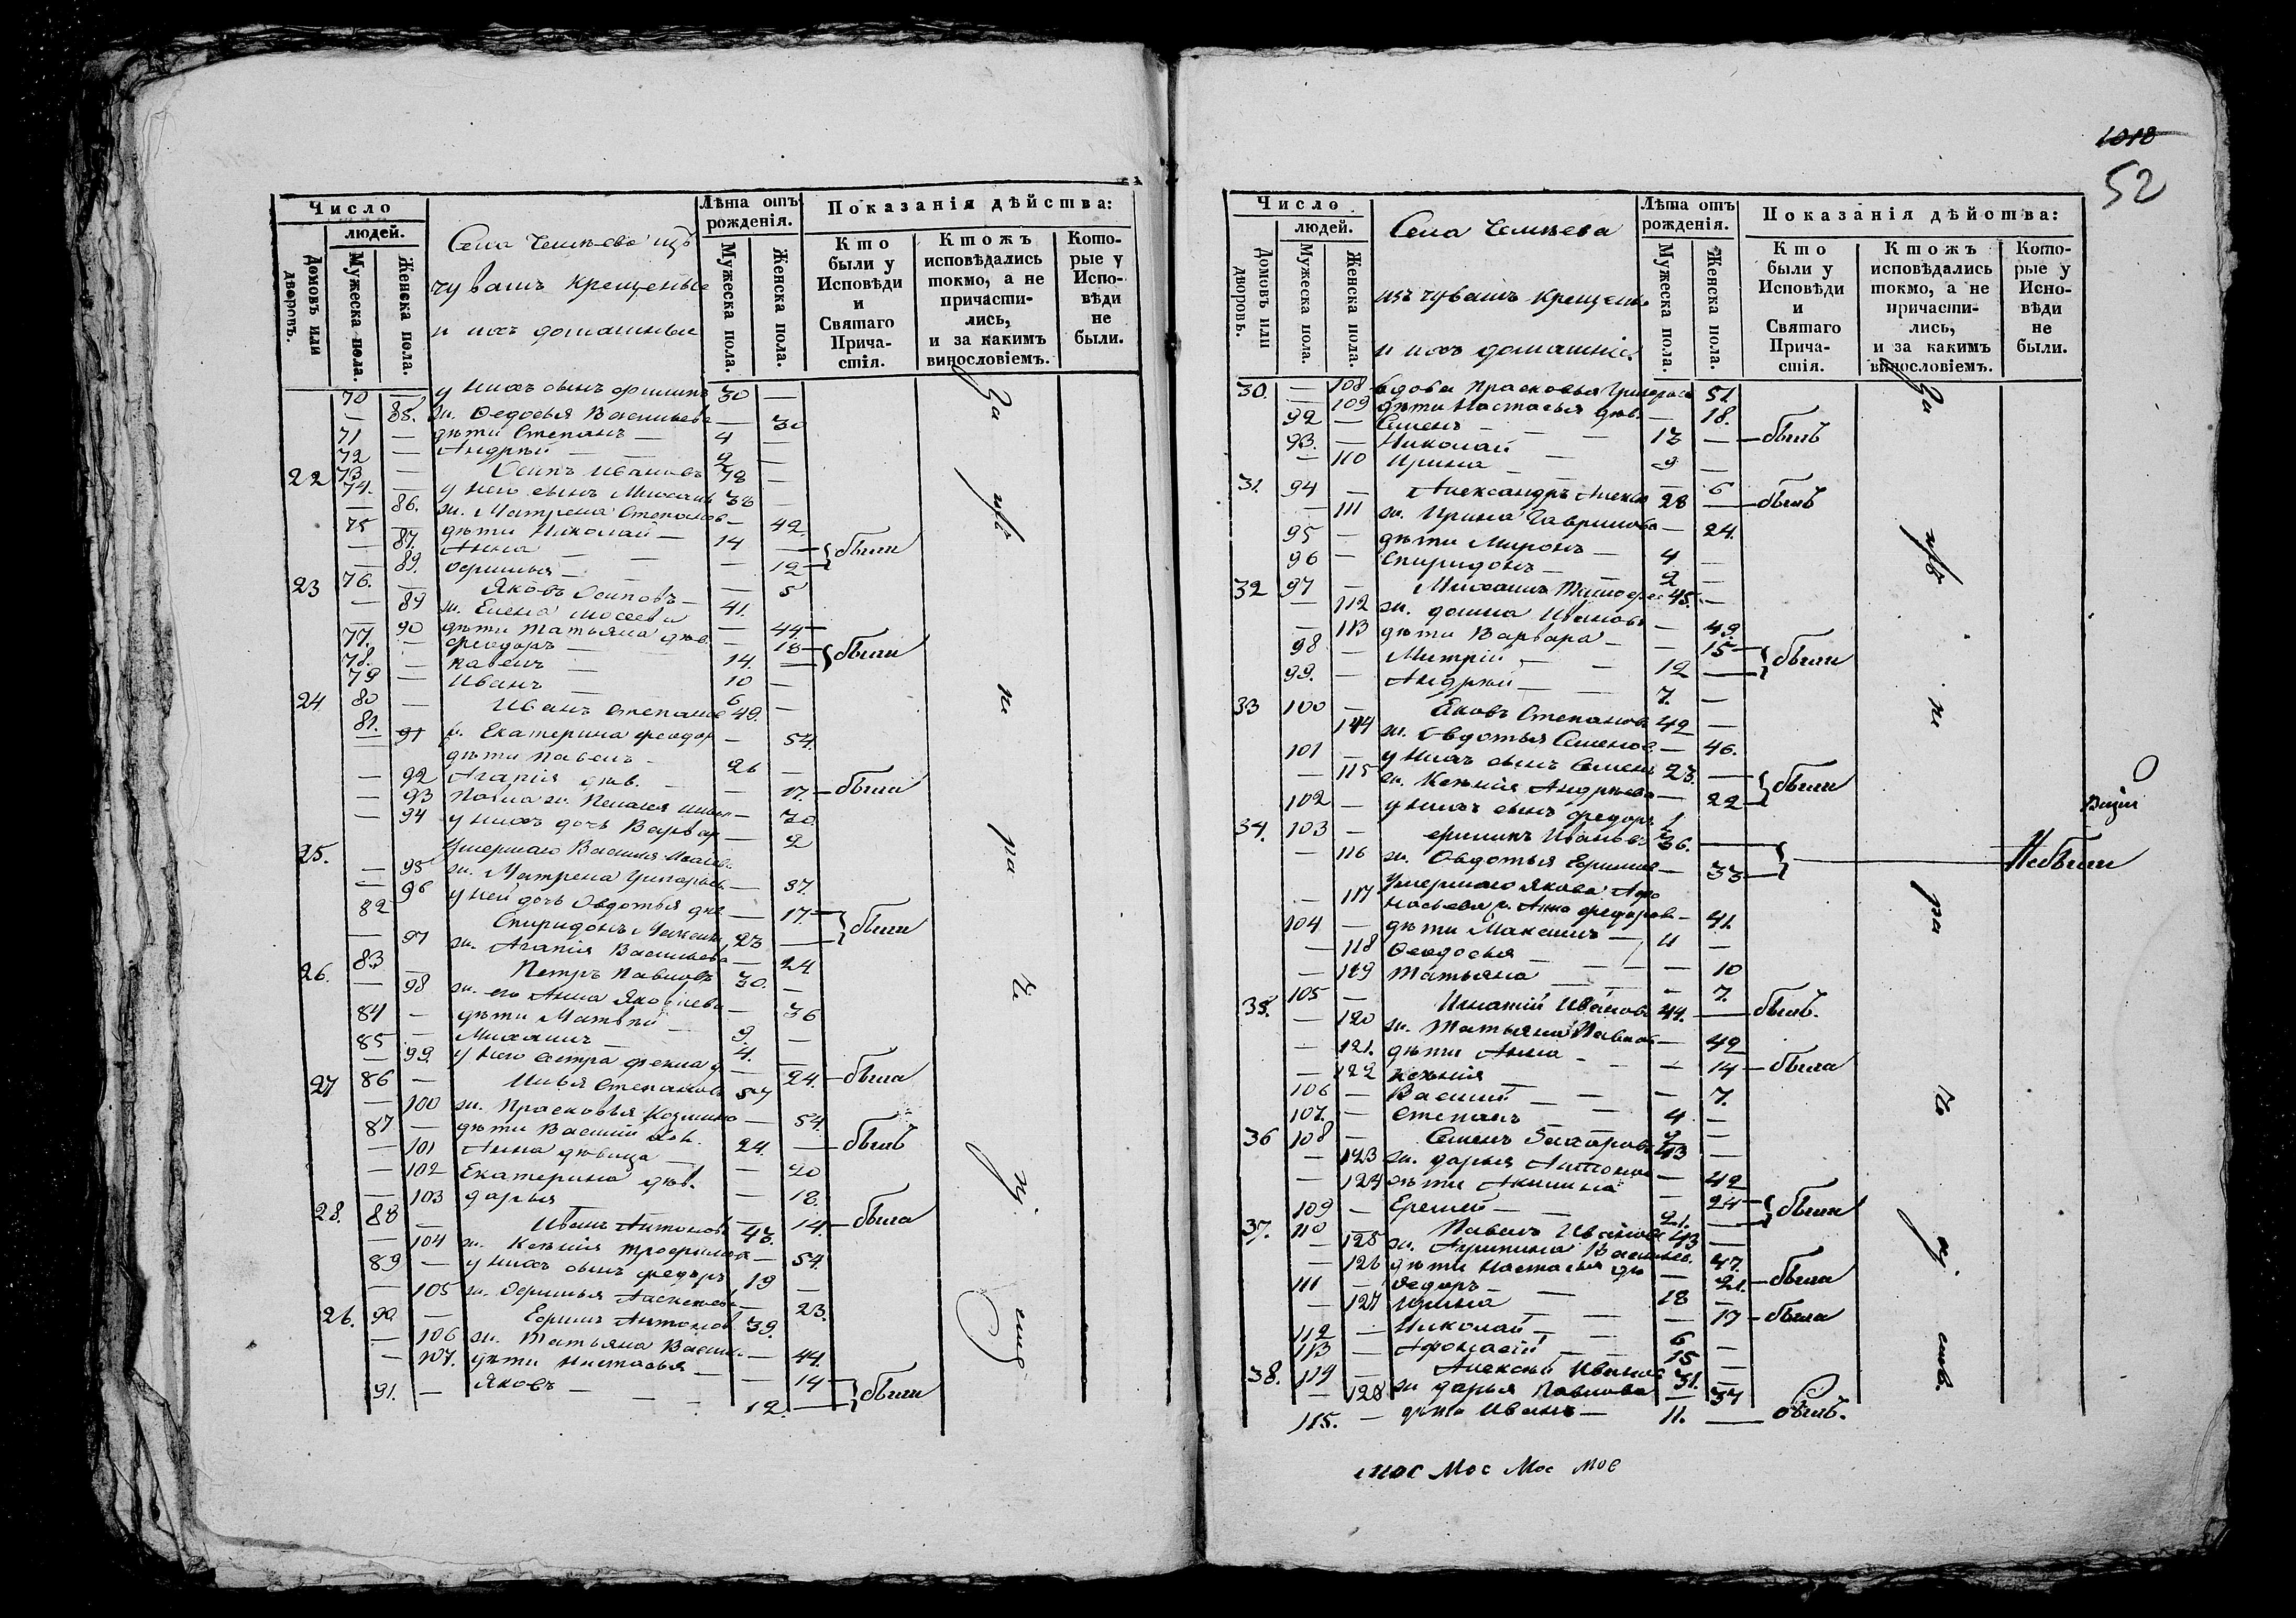 Число
людей.
Домовъ или дворовъ.
Мужеска пола.
Женска пола.
Села
чувашъ крещеные
и ихъ домашныи
Лѣта отъ рожденія.
Мужеска пола.
Женска пола.
Показанія дѣйства:
Кто были у Исповѣди и Святаго Причастія.
Ктожъ исповѣдались токмо, а не причастились, и за какимъ винословіемъ.
Которые у Исповѣди не были.
70 — у нихъ сынъ Филипъ 30 —
— 85. ж. Федосья Васильева — 30
71 — дѣти Степанъ — 4 —
72 — Андрѣй — 2 —
22 73 — Осипъ Ивановъ 78 —
74. — у него сынъ Михаилъ 38 —
— 86. ж. Матрена Степанов — 42.
75 — дѣти Николай — 14 —
— 87. Анна — 12 были
— 89. — 5
23 76. — Яковъ Осиповъ — 41.
— 89 ж. Елена — 44
— 90 дѣти Татьяна дѣв. — 18 были
77. — Феодоръ — 14. —
78. — Павелъ — 10 —
79 — Иванъ — 6 —
24 80 — Иванъ Степанов 49. —
81. 91 ж. Екатерина Феодор — 54.
дѣти Павелъ — 26 —
— 92 Агапія дѣв. — 17. были
— 93 Павла ж. Пелагея — 30
— 94 у нихъ дочь Варвар — 2
25. Умершаго Василья
— 95 ж. Матрена Григорьев — 37.
— 96 у ней дочь Овдотья дѣв — 17. были
82 — Спиридонъ 23 —
— 97 ж. Агапія Васильева — 24
26. 83 — Петръ Павловъ 30. —
— 98 ж. его Анна Яковлева — 36
84 — дѣти Матвѣй — 9. —
85 — Михаилъ — 4. —
— 99. у него сестра Фекла д — 24. была
27 86 — Илья Степановъ 57
— 100 ж. Прасковья Козмина — 54.
87 — дѣти Василій 24. — былъ
— 101 Анна дѣвица — 20
— 102 Екатерина дѣв. — 18.
— 103 Дарья — 14. была
28. 88 — Иванъ Антоновъ 43.
— 104 ж. Ксенія Трофимова — 54.
89 — у нихъ сынъ Федоръ 19 —
— 105 ж. Офимья — 23.
26. 90 — Ефимъ Антонов 39.
— 106 ж. Татьяна Васил — 44.
— 107. дѣти Настасья — 14 были
91. — Яковъ — 12. —
За
не
ра
че
ні
емъ
1018
52
Число
людей.
Домовъ или дворовъ.
Мужеска пола.
Женска пола.
Села
изъ чувашъ крещены
и ихъ домашнія
Лѣта отъ рожденія.
Мужеска пола.
Женска пола.
Показанія дѣйства:
Кто были у Исповѣди и Святаго Причастія.
Ктожъ исповѣдались токмо, а не причастились, и за какимъ винословіемъ.
Которые у Исповѣди не были.
30. — 108 вдова Прасковья Григорьев 51
— 109 дѣти Настасья дѣв. — 18.
92 — Семенъ — 13 — былъ
93. — Николай — 9 —
— 110 Ирина — 6
31. 94 — Александръ Алекс 28 — былъ
— 111 ж. Ирина Гаврилова — 24.
95 — дѣти Миронъ — 4 —
96 — Спиридонъ — 2 —
32 97 — Михаилъ Тимофее 45. —
— 112 ж. Домна Иванов — 49.
— 113 дѣти Варвара — 15 были
98 — Митрій — 12 —
99. — Андрѣй — 7. —
33 100 — Яковъ Степановъ 42 —
114 ж. Овдотья Семенов. — 46.
101 — у нихъ сынъ Семенъ 23. — были
— 115 ж. Ксенія Андрѣева — 22
102 — у нихъ сынъ Федоръ
34. 103 — Филипъ Ивановъ 36. —
— 116 ж. Овдотья Ефимов — 33 Небыли
Умершаго Якова Афо
— 117 насьева ж. Анна Федоров — 41.
104 — дѣти Максимъ — 11 —
— 118 Феодосья — 10
— 119 Татьяна — 7.
35. 105 — Игнатій Иванов 44. — былъ.
— 120 ж. Татьяна Павлов — 42
— 121. дѣти Анна — 14 была
— 122 Ксенія — 7.
106 — Василій — 4 —
107. — Степанъ —
36 108 — Семенъ Захаровъ 43 —
— 123 ж. Дарья Антонова — 42
— 124 дѣти Акилина — 24 были
109 — Еремей — 21. —
37. 110 — Павелъ Иванов 43 —
— 125 ж. Акулина Васильев. 47.
— 126 дѣти Настасья дѣ — 21. была
111 — Федоръ — 18 —
— 127 Ирина — 17 была
112 — Николай — 6 —
113 — Афонасій — 15 —
38. 114 — Алексѣй Иванов 31. —
— 128 ж Дарья Павлова — 37
115. — дѣти Иванъ — 11. — былъ.
За
не
ра
че
ні
емъ.
мос Мос Мос мос